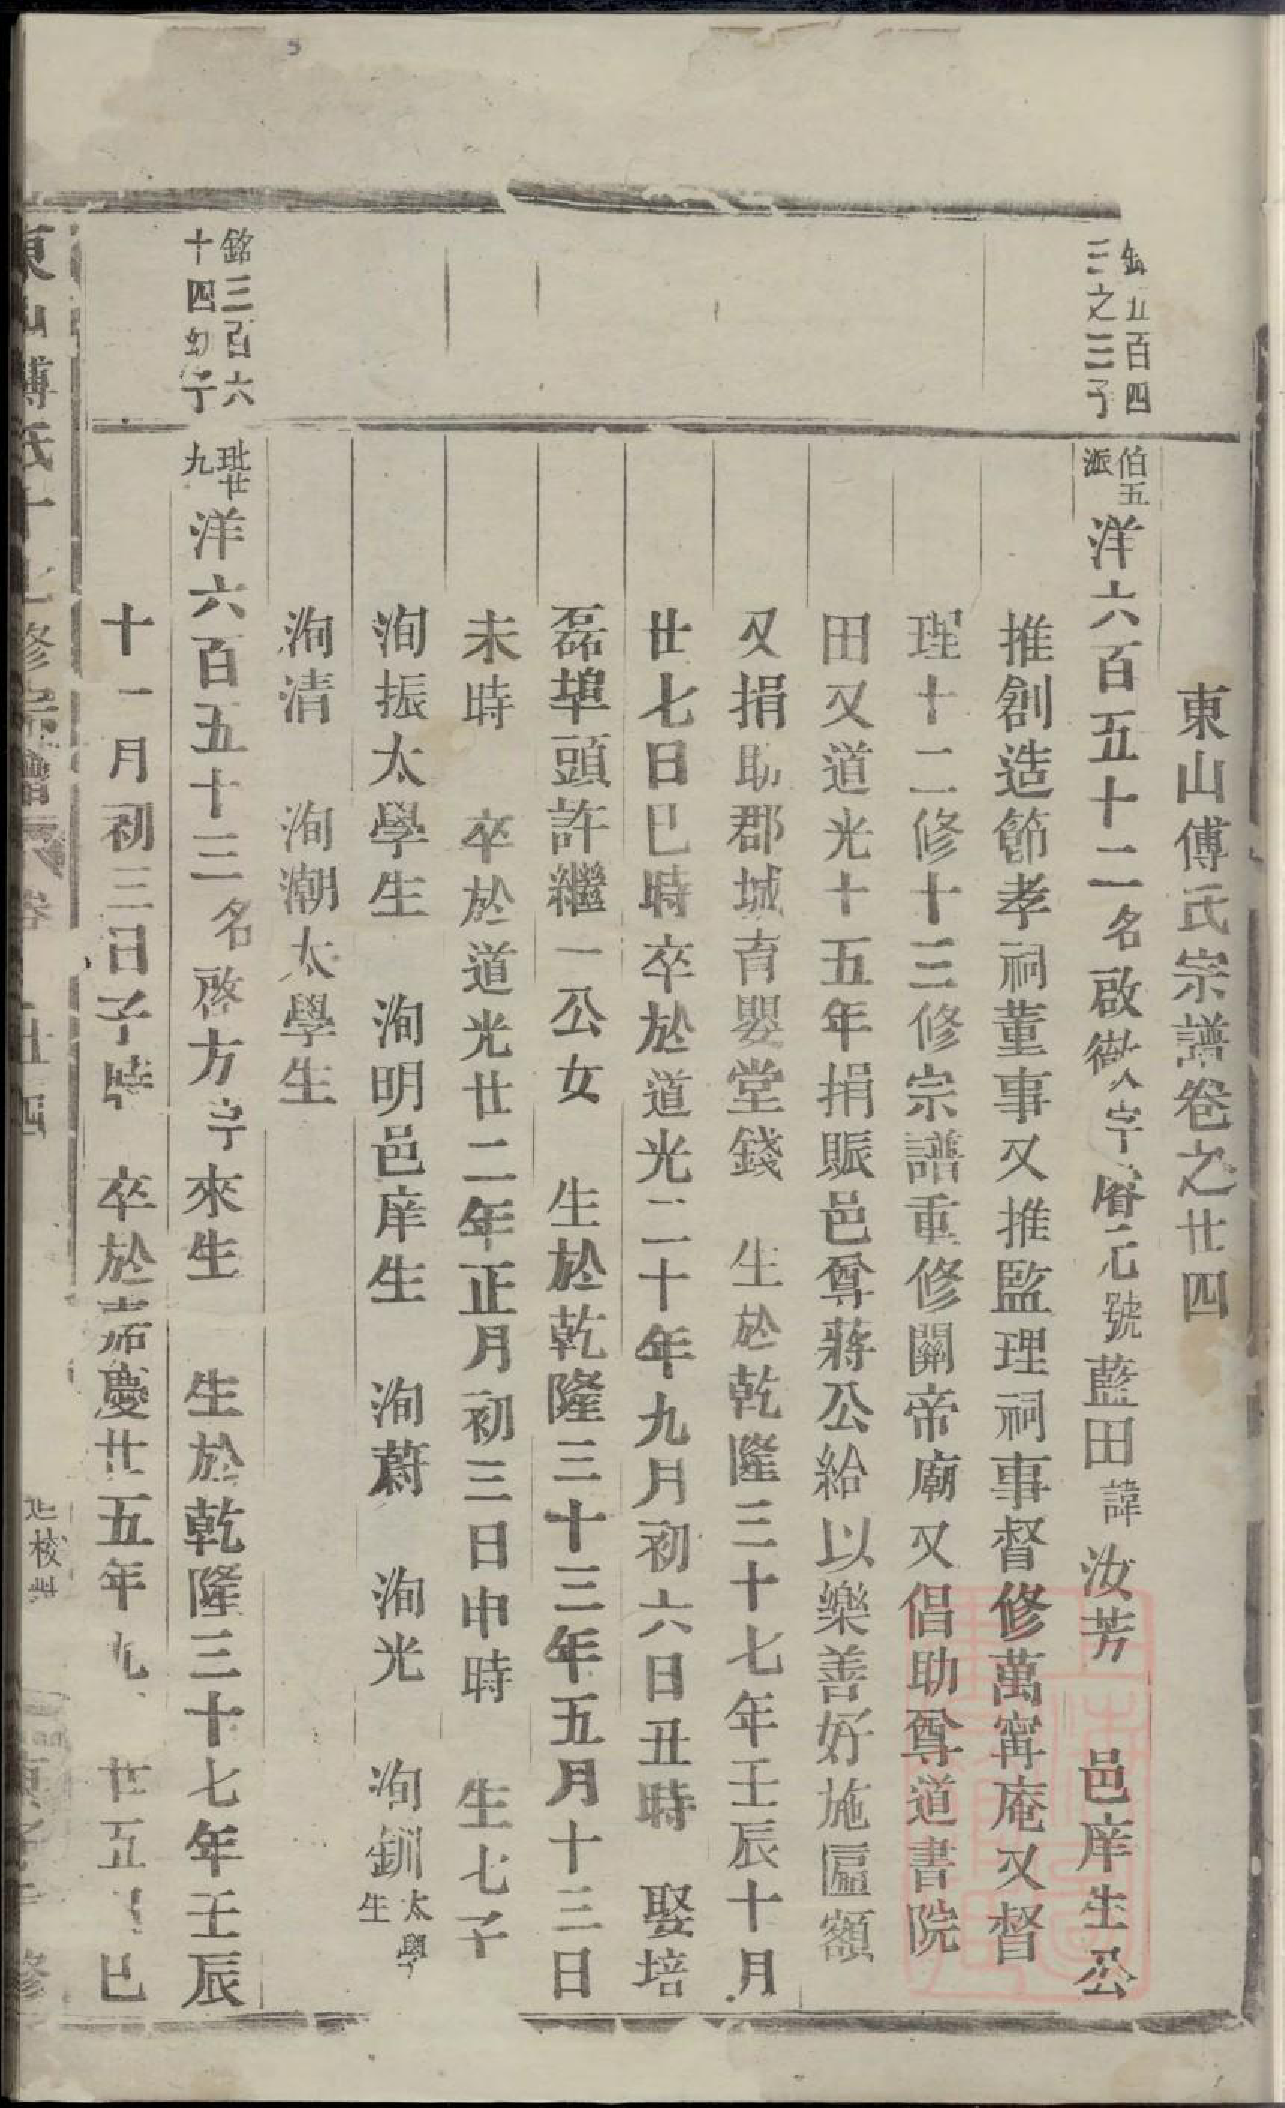 東山傅氏宗譜卷之廿四
五百四
三之三子
伯五
派
洋六百五十二名啟 字 元號藍田諱汝芳 邑庠生公
推創造節孝祠董事又推監理祠事督修萬甯庵又督
理十二修十三修宗譜重修關帝廟又倡助尊道書院
田又道光十五年捐賑邑尊蔣公給以樂善好施匾額
又捐助郡城育嬰堂錢 生於乾隆三十七年壬辰十月
廿七日巳時卒於道光二十年九月初六日丑時 娶培
磊埠頭許繼一公女 生於乾隆三十三年五月十三日
未時 卒於道光廿二年正月初三日申時 生七子
洵振太學生 洵明邑庠生 洵蔚 洵光 洵釧太學生
洵清 洵潮太學生
銘三百六
十四幼子
玭廿
九
洋六百五十三名啓方字來生 生於乾隆三十七年壬辰
十一月初三日子時 卒於嘉慶廿五年九 廿五 巳
東山傅氏十七修宗譜 卷 廿四